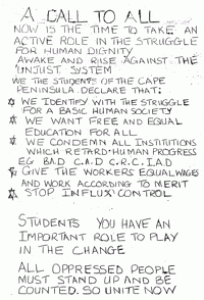 A CALL TO ALL
NOW IS THE TIME TO TAKE AN
ACTIVE ROLE IN THE STRUGGLE
FOR HUMAN DIGNITY
AWAKE AND RISE AGAINST THE
UNJUST SYSTEM
WE THE STUDENTS OF THE CAPE
PENINSULA DECLARE THAT:
☆ WE IDENTIFY WITH THE STRUGGLE
FOR A BASIC HUMAN SOCIETY
☆ WE WANT FREE AND EQUAL
EDUCATION FOR ALL
☆ WE CONDEMN ALL INSTITUTIONS
WHICH RETARD HUMAN PROGRESS
EG BAD C.A.D C.R.C. I.A.D
☆ GIVE THE WORKERS EQUAL WAGES
AND WORK ACCORDING TO MERIT
☆ STOP INFLUX CONTROL
STUDENTS YOU HAVE AN
IMPORTANT ROLE TO PLAY
IN THE CHANGE
ALL OPPRESSED PEOPLE
MUST STAND UP AND BE
COUNTED. SO UNITE NOW